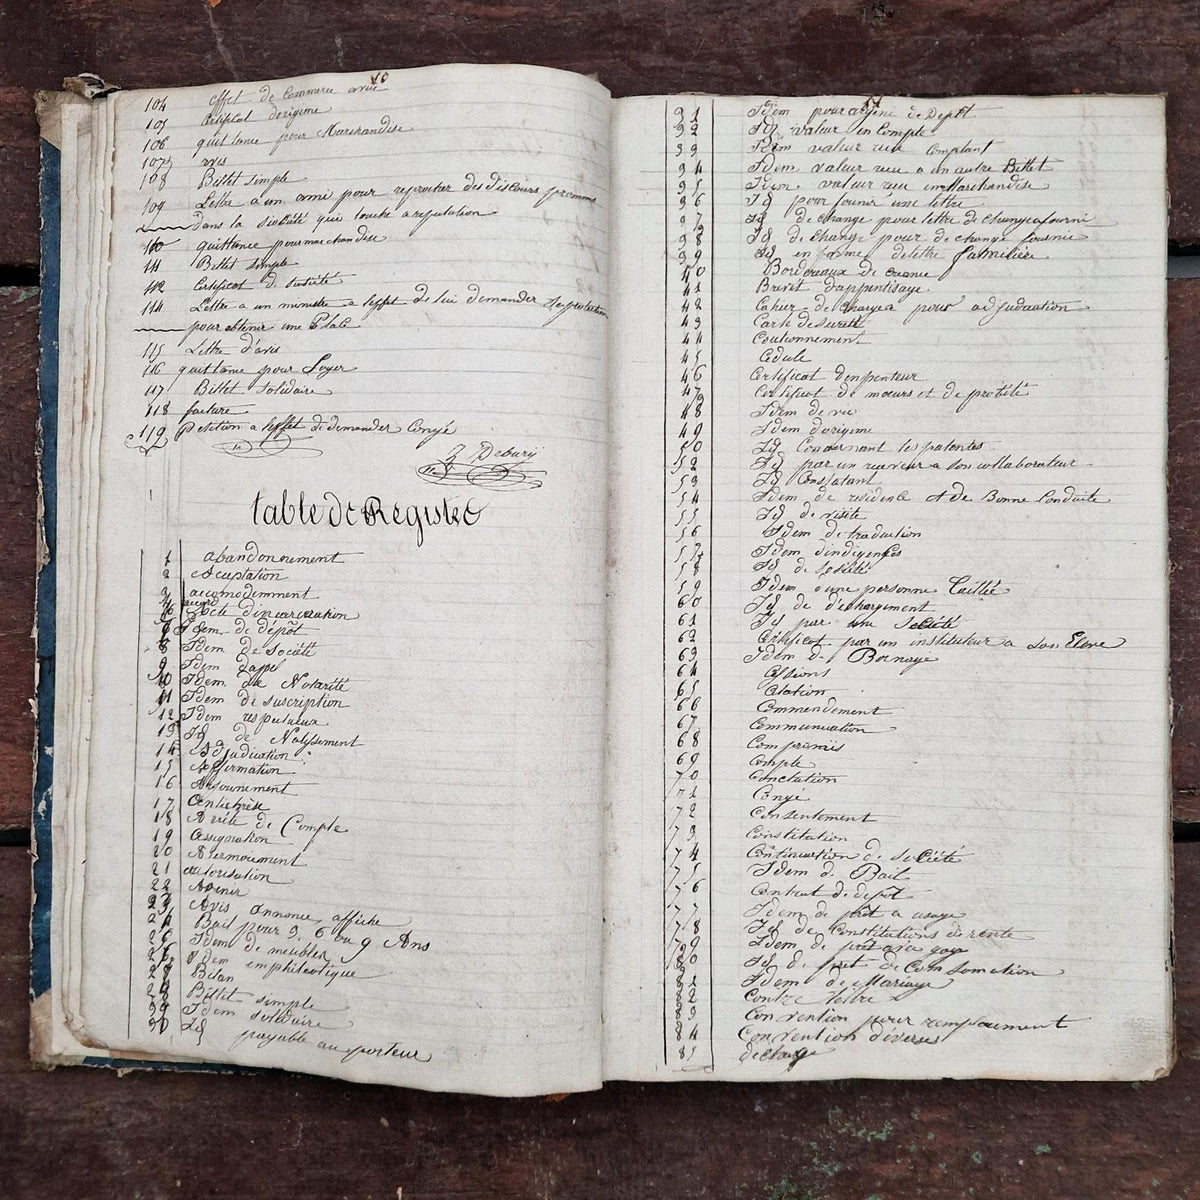 10
104 effet de Commerce avec
105 Certificat dorigine
106 quittance pour Marchandise
107 avis
108 Billet simple
109 Lettre a un ami pour reprocher des discours
dans la société qui touche a reputation
110 quittance pour marchandise
111 Billet simple
112 Certificat de société
114 Lettre a un ministre a leffet de lui demander
pour obtenir une Place
115 Lettre d'avis
116 quittance pour Loyer
117 Billet solidaire
118 facture
119 Petition a leffet de demander Congé
table de Registre
1 abandonnement
2 acceptation
3 accomodemment
accord
acte dincarceration
Idem de dépôt
8 Idem de Société
9 Idem dapel
10 Idem de Notarité
11 Idem de suscription
12 Idem respectueux
13 Id de
14 Adjudication
15 Affirmation
16 Ajournement
17 Antichrèse
18 Arrêté de Compte
19 assignation
20 Atermoiement
21 autorisation
22 Avenir
23 Avis annonce, affiche
24 Bail pour 3, 6 ou 9 Ans
Idem de meubles
Idem emphiteotique
Bilan
28 Billet simple
29 Idem solidaire
30 Id payable au porteur
11
31 Idem pour argent de Depôt
32 Id valeur en Compte
33 Idem valeur reçu Comptant
34 Idem valeur reçu a un autre Billet
35 Idem valeur reçu en Marchandise
36 Id pour founir une lettre
37 Id de change pour lettre de change a fourni
38 Id de change pour de change fournie
39 Id en forme de lettre familière
40 Bordereaux de creance
41 Brevet d'apprentisage
42 Cahier de charges pour adjudication
43 Carte de sureté
44 Cautionnement
45 Cedule
46 Certificat
47 Certificat de mœurs et de probité
48 Idem de vie
49 Idem d'origine
50 Id Concernant les patentes
52 Id par un receveur a son collaborateur
53 Id Constatant
54 Idem de residence et de Bonne Conduite
55 Id de visite
56 Idem de traduction
57 Idem dindigence
58 Id de société
59 Idem a une personne
60 Id de dechargement
61 Id par une Société
62 Certificat par un instituteur a son Eleve
63 Idem de Bornage
64 Cessions
65 Citation
66 Commendement
67 Communication
68 Compromis
69 Compte
70
71 Congé
72 Consentement
73 Constitution
74 Continuation de société
75 Idem de Bail
76 Contrat de dépôt
77 Idem de prêt a usage
78 Id de Constitutions de rente
79 Idem de prêt avec gage
80 Id de prêt de Consomation
81 Idem de Mariage
82 Contre lettre
83 Convention pour remplacement
84 Convention diverses
85